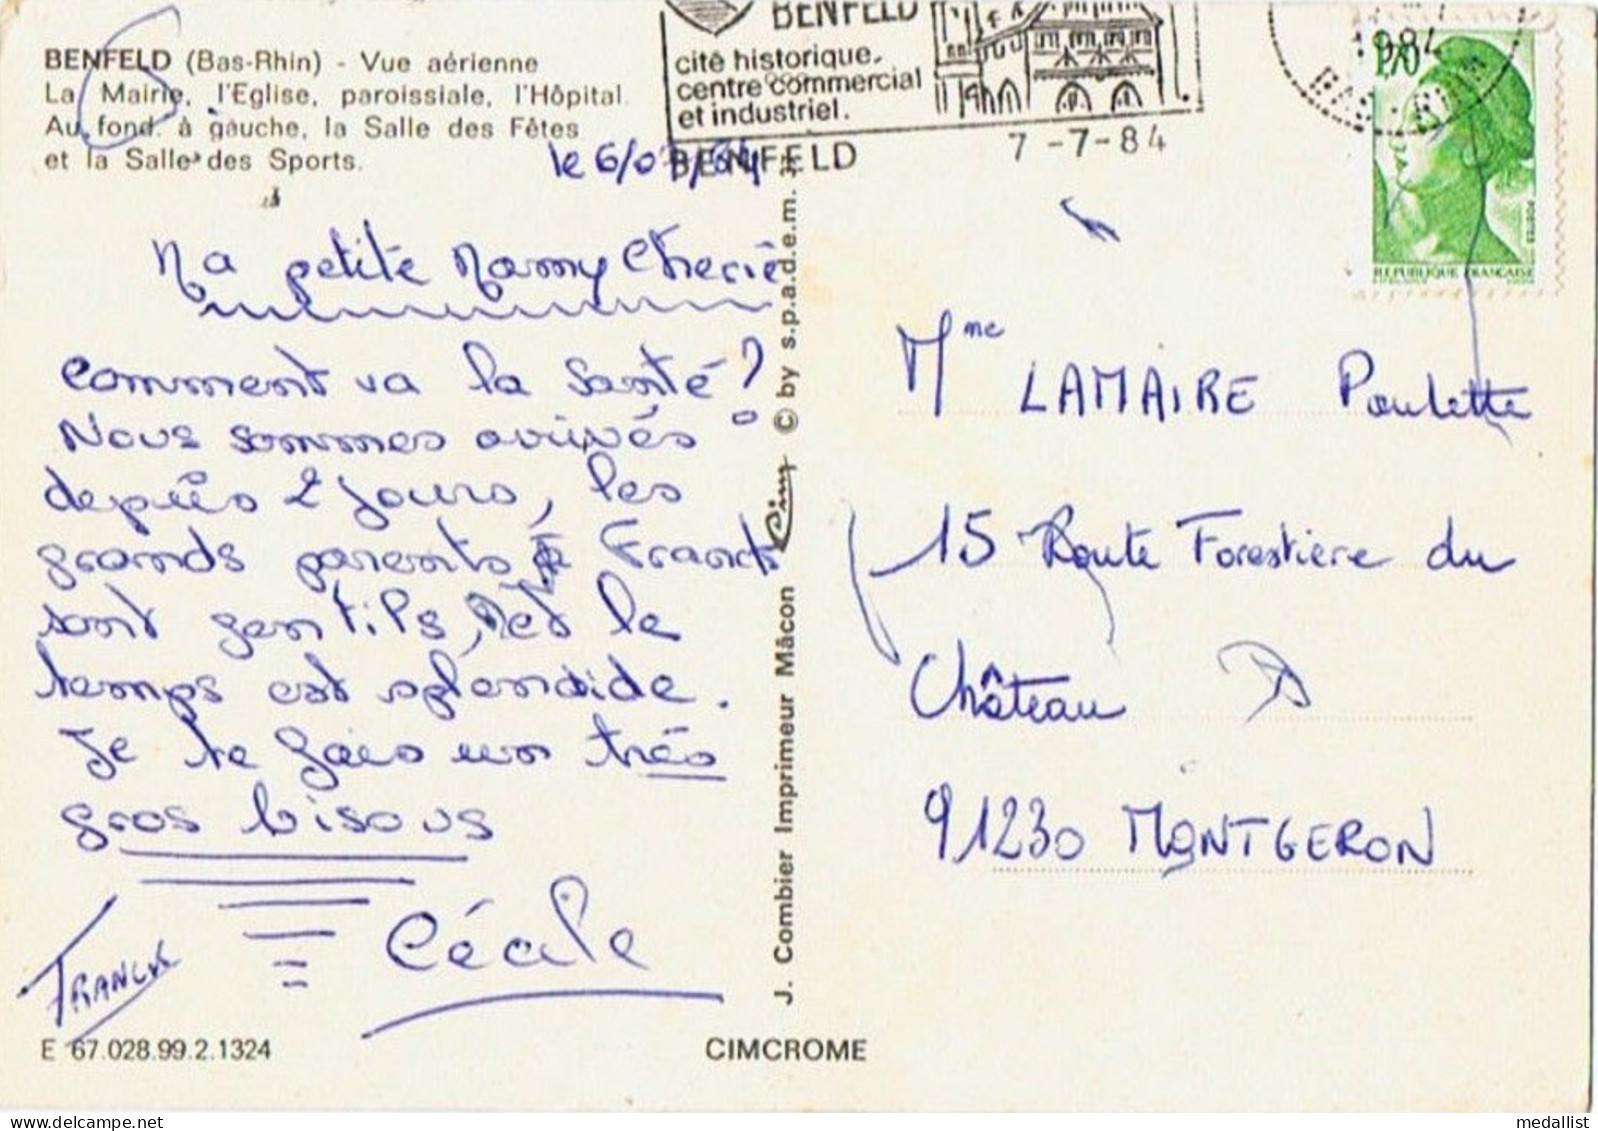 BENFELD (Bas-Rhin) - Vue aérienne
La Mairie, l'Eglise, paroissiale, l'Hôpital.
Au fond à gauche, la Salle des Fêtes
et la Salle des Sports.
BENFELD
cité historique,
centre commercial
et industriel.
BENFELD
7-7-84
1984
BAS-RHIN
1,70
POSTES
REPUBLIQUE FRANÇAISE
le 6/07/84
Ma petite Mamy Cherie
Comment va la santé?
Nous sommes arrivés
depuis 2 jours, les
grands parents de Franck
sont gentils, et le
temps est splendide.
Je te fais un très
gros bisous
Cécile
FRANCK
Mme LAMAIRE Paulette
15 Route Forestiere du
Château
91230 MONTGERON
J. Combier Imprimeur Mâcon Cim © by s.p.a.d.e.m.
E 67.028.99.2.1324
CIMCROME
medallist